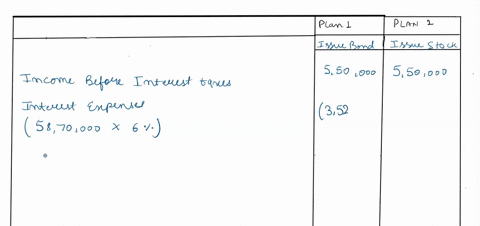 Plan 1 PLAN 2
Issue Bond Issue Stock
Income Before Interest taxes 5,50,000 5,50,000
Interest Expenses (3,52
(58,70,000 x 6%)